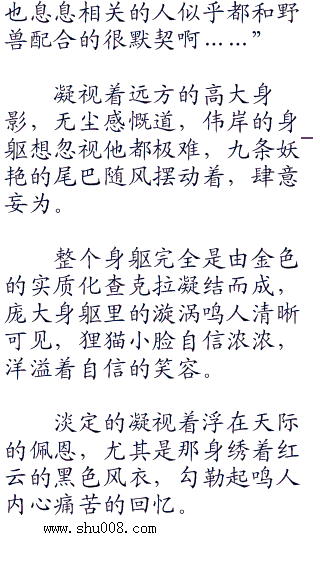 也息息相关的人似乎都和野
兽配合的很默契啊……”
凝视着远方的高大身
影，无尘感慨道，伟岸的身
躯想忽视他都极难，九条妖
艳的尾巴随风摆动着，肆意
妄为。
整个身躯完全是由金色
的实质化查克拉凝结而成，
庞大身躯里的漩涡鸣人清晰
可见，狸猫小脸自信浓浓，
洋溢着自信的笑容。
淡定的凝视着浮在天际
的佩恩，尤其是那身绣着红
云的黑色风衣，勾勒起鸣人
内心痛苦的回忆。
www.shu008.com